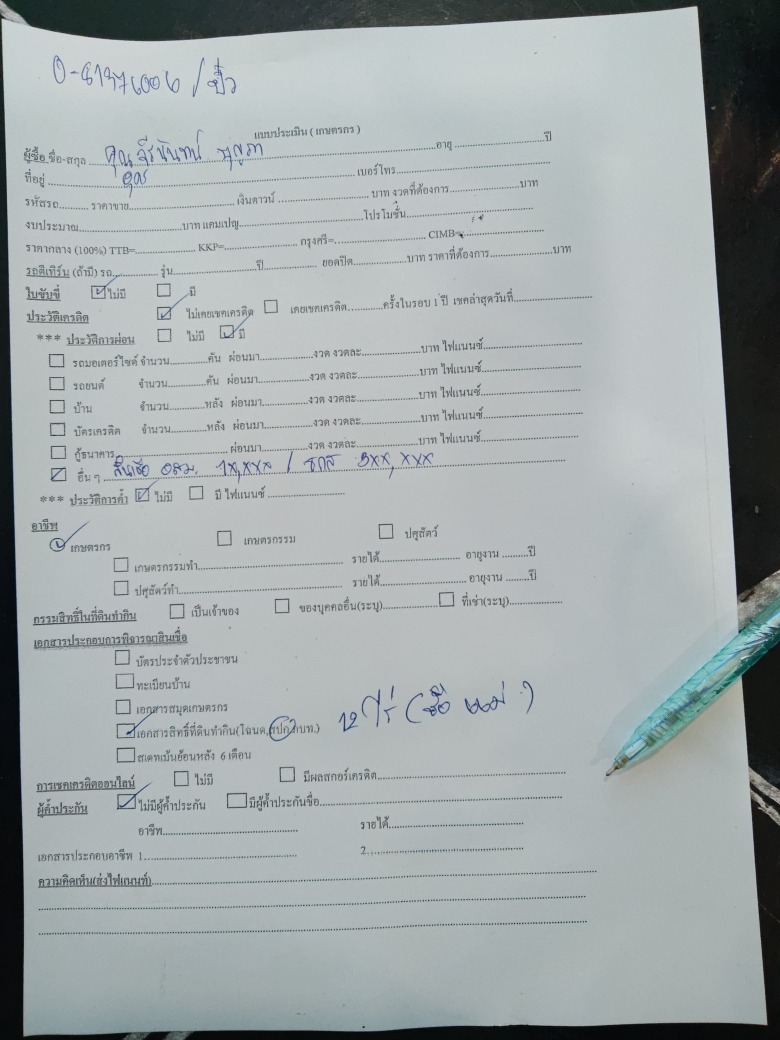 แบบประเมิน ( เกษตรกร )
ผู้ซื้อ ชื่อ-สกุล คุณ จีรนันทน์ อายุ ปี
ที่อยู่ เบอร์โทร
รหัสรถ ราคาขาย เงินดาวน์ บาท งวดที่ต้องการ บาท
งบประมาณ บาท แคมเปญ โปรโมชั่น
ราคากลาง (100%) TTB= KKP= กรุงศรี= CIMB=
รถตีเทิร์น (ถ้ามี) รถ รุ่น ปี ยอดปิด บาท ราคาที่ต้องการ บาท
ใบขับขี่ ไม่มี มี
ประวัติเครดิต ไม่เคยเชคเครดิต เคยเชคเครดิต ครั้งในรอบ 1 ปี เชคล่าสุดวันที่
*** ประวัติการผ่อน ไม่มี มี
รถมอเตอร์ไซค์ จำนวน คัน ผ่อนมา งวด งวดละ บาท ไฟแนนซ์
รถยนต์ จำนวน คัน ผ่อนมา งวด งวดละ บาท ไฟแนนซ์
บ้าน จำนวน หลัง ผ่อนมา งวด งวดละ บาท ไฟแนนซ์
บัตรเครดิต จำนวน หลัง ผ่อนมา งวด งวดละ บาท ไฟแนนซ์
กู้ธนาคาร ผ่อนมา งวด งวดละ บาท ไฟแนนซ์
อื่น ๆ สินเชื่อ อสม. 1x,xxx / ธกส 3xx,xxx
*** ประวัติการค้ำ ไม่มี มี ไฟแนนซ์
อาชีพ
เกษตรกร เกษตรกรรม ปศุสัตว์
เกษตรกรรมทำ รายได้ อายุงาน ปี
ปศุสัตว์ทำ รายได้ อายุงาน ปี
กรรมสิทธิ์ในที่ดินทำกิน เป็นเจ้าของ ของบุคคลอื่น(ระบุ) ที่เช่า(ระบุ)
เอกสารประกอบการพิจารณาสินเชื่อ
บัตรประจำตัวประชาชน
ทะเบียนบ้าน
เอกสารสมุดเกษตรกร
เอกสารสิทธิ์ที่ดินทำกิน(โฉนด,สปก,ภบท.) 12 ไร่ (ชื่อ แม่)
สเตทเม้นย้อนหลัง 6 เดือน
การเชคเครดิตออนไลน์ ไม่มี มีผลสกอร์เครดิต
ผู้ค้ำประกัน ไม่มีผู้ค้ำประกัน มีผู้ค้ำประกันชื่อ
อาชีพ รายได้
เอกสารประกอบอาชีพ 1. 2.
ความคิดเห็น(ส่งไฟแนนท์)